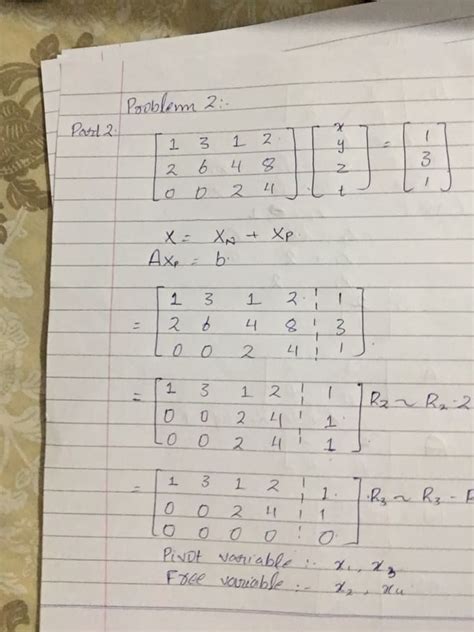 Problem 2:-
Part 2.
[1 3 1 2 ; 2 6 4 8 ; 0 0 2 4] . [x ; y ; z ; t] = [1 ; 3 ; 1]
x = xN + xP.
AxP = b.
= [1 3 1 2 ¦ 1 ; 2 6 4 8 ¦ 3 ; 0 0 2 4 ¦ 1]
= [1 3 1 2 ¦ 1 ; 0 0 2 4 ¦ 1 ; 0 0 2 4 ¦ 1] R2 ~ R2 - 2
= [1 3 1 2 ¦ 1 ; 0 0 2 4 ¦ 1 ; 0 0 0 0 ¦ 0] R3 ~ R3 -
Pivot variable :- x1, x3
Free variable :- x2, x4